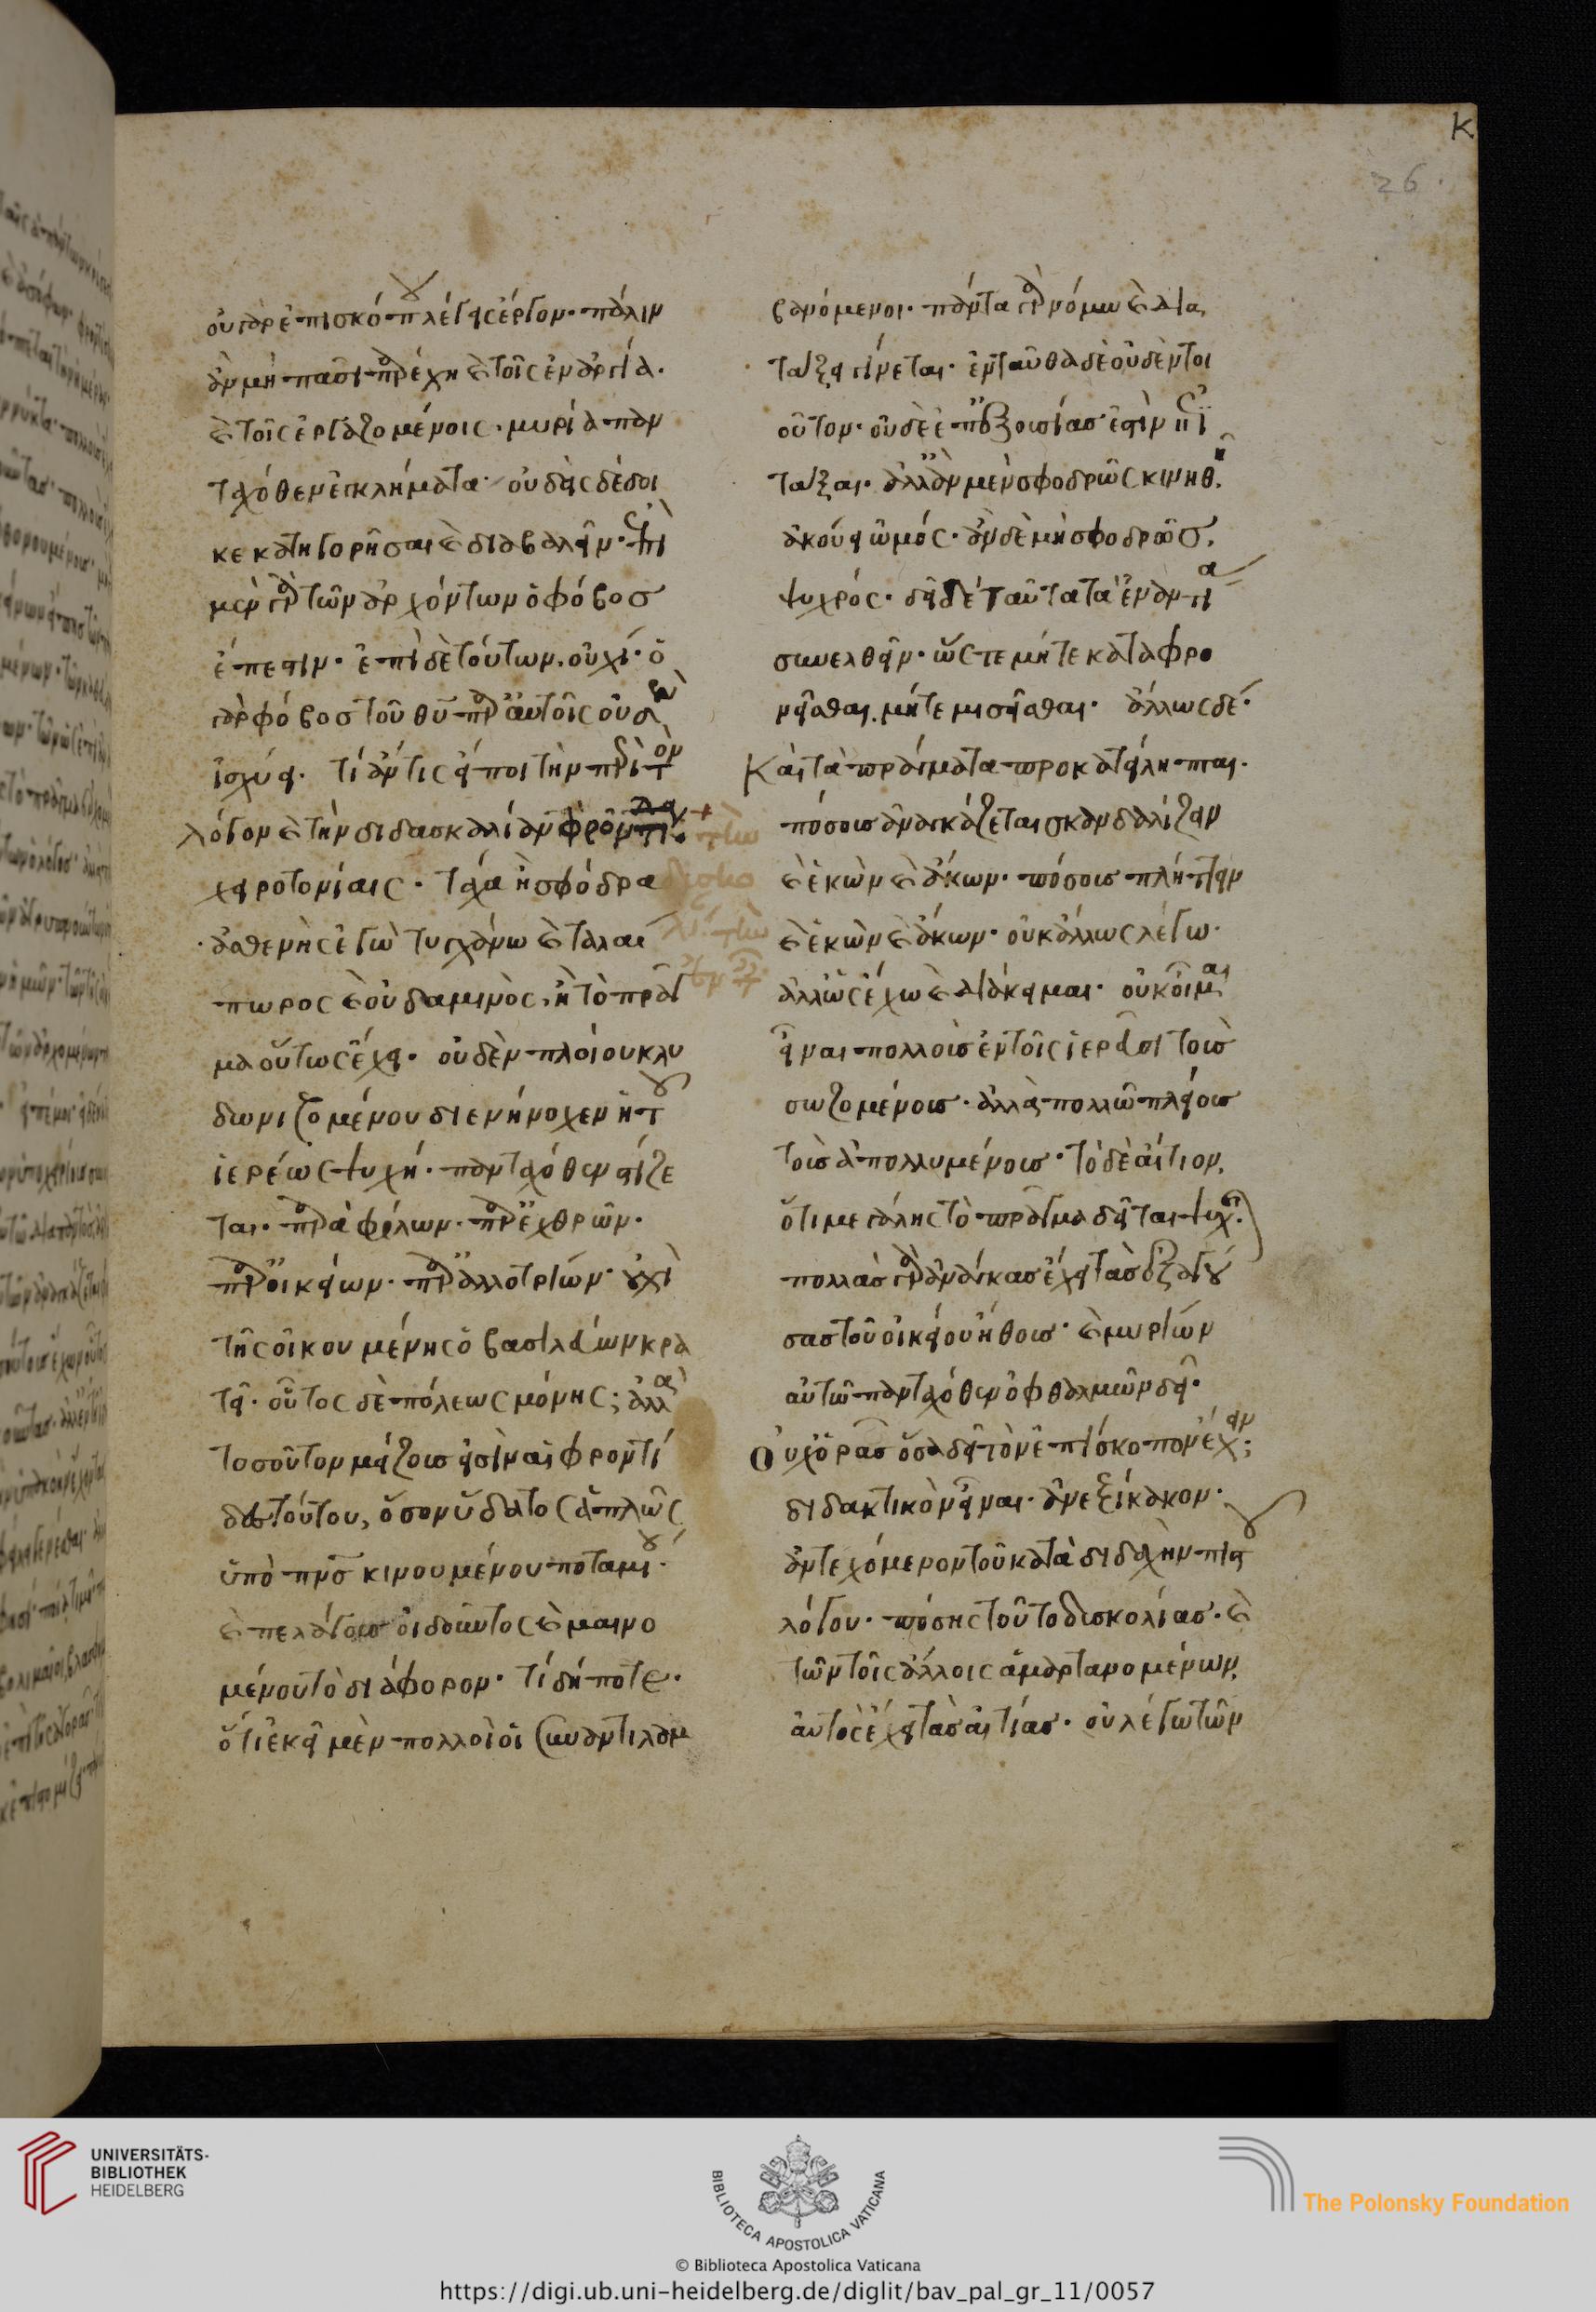 κ
26.
οὐ γὰρ ἐπισκόπου λέγεις ἔργον· πάλιν
ἂν μὴ πᾶσι παρέχη καὶ τοῖς ἐν ἀργία·
καὶ τοῖς ἐργαζομένοις· μυρία παν
ταχόθεν ἐγκλήματα· οὐδεὶς δέδοι
κε κατηγορῆσαι καὶ διαβαλεῖν· ἐπὶ
μὲν γὰρ τῶν ἀρχόντων ὁ φόβος
ἔπεστιν· ἐπὶ δὲ τούτων, οὐχί· ὁ
γὰρ φόβος τοῦ θυ παρ' αὐτοῖς οὐδὲν
ἰσχύει· τί ἄν τις εἴποι τὴν περὶ τὸν
λόγον καὶ τὴν διδασκαλίαν
χειροτονίαις· τάχα ἢ σφόδρα
ἀσθενὴς ἐγὼ τυγχάνω καὶ ταλαί
πωρος καὶ οὐδαμινὸς, ἢ τὸ πρᾶγ
μα οὕτως ἔχει· οὐδὲν πλοίου κλυ
δωνιζομένου διενήνοχεν ἡ τοῦ
ἱερέως ψυχή· πανταχόθεν στίζε
ται· παρὰ φίλων· παρ' ἐχθρῶν·
παρ' οἰκείων· παρ' ἀλλοτρίων· οὐχὶ
τῆς οἰκουμένης ὁ βασιλεύων κρα
τεῖ· οὗτος δὲ πόλεως μόνης; ἀλλὰ
τοσοῦτον μείζους εἰσὶν αἱ φροντί
δες τούτου, ὅσον ὕδατος ἁπλῶς
ὑπὸ πνς κινουμένου ποταμοῦ·
καὶ πελάγους οἰδοῦντος καὶ μαινο
μένου τὸ διάφορον· τί δήποτε·
ὅτι ἐκεῖ μὲν πολλοὶ οἱ συναντιλαμ
βανόμενοι· πάντα γὰρ νόμω καὶ δια
τάξει γίνεται· ἐνταῦθα δὲ οὐδὲν τοι
οῦτον· οὐδὲ ἐπ' ἐξουσίας ἐστὶν ἐπι
τάξαι· ἀλλ' ἂν μὲν σφοδρῶς κινηθῆ
ἀκούει ὠμός· ἂν δὲ μὴ σφοδρῶς,
ψυχρός· δεῖ δὲ ταῦτα τὰ ἐναντία
συνελθεῖν· ὥστε μήτε καταφρο
νεῖσθαι, μήτε μισεῖσθαι· ἄλλως δέ·
Καὶ τὰ πράγματα προκατείληπται·
πόσους ἀναγκάζεται σκανδαλίζειν
καὶ ἑκὼν καὶ ἄκων· πόσους πλήττειν
καὶ ἑκὼν καὶ ἄκων· οὐκ ἄλλως λέγω·
ἀλλ' ὡς ἔχω καὶ διάκειμαι· οὐκ οἶμαι
εἶναι πολλοὺς ἐν τοῖς ἱερεῦσι τοὺς
σωζομένους· ἀλλὰ πολλῶ πλείους
τοὺς ἀπολλυμένους· τὸ δὲ αἴτιον,
ὅτι μεγάλης τὸ πρᾶγμα δεῖται ψυχῆς·
πολλὰς γὰρ ἀνάγκας ἔχει τὰς ἐξαγού
σας τοῦ οἰκείου ἤθους· καὶ μυρίων
αὐτῶ πανταχόθεν ὀφθαλμῶν δεῖ·
Οὐχ ὁρᾶς ὅσα δεῖ τὸν ἐπίσκοπον ἔχειν;
διδακτικὸν εἶναι· ἀνεξίκακον·
ἀντεχόμενον τοῦ κατὰ διδαχὴν πιστοῦ
λόγου· πόσης τοῦτο δυσκολίας· καὶ
τῶν τοῖς ἄλλοις ἁμαρτανομένων,
αὐτὸς ἔχει τὰς αἰτίας· οὐ λέγω τῶν
UNIVERSITÄTS-
BIBLIOTHEK
HEIDELBERG
BIBLIOTECA APOSTOLICA VATICANA
The Polonsky Foundation
© Biblioteca Apostolica Vaticana
https://digi.ub.uni-heidelberg.de/diglit/bav_pal_gr_11/0057